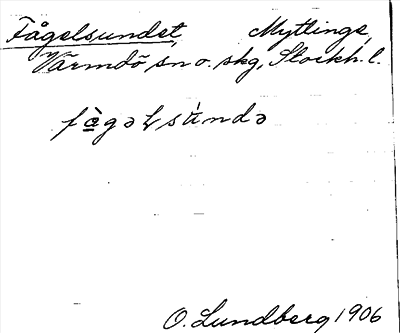 Fågelsundet, Myttinge,
Värmdö sn o. skg, Stockh. l.
fàgəɫsúndə
O. Lundberg 1906